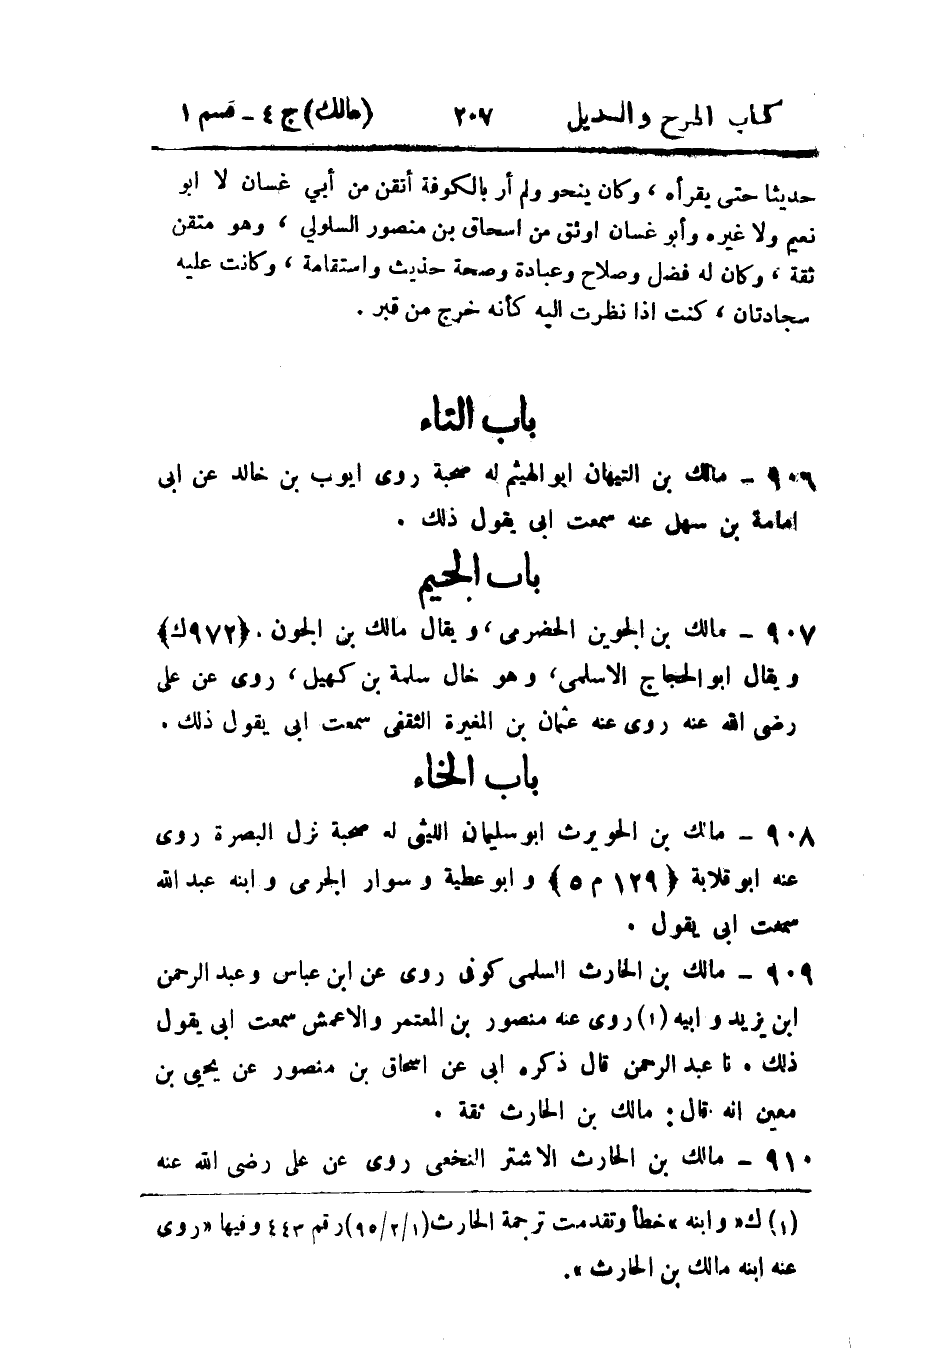 كتاب الجرح والتعديل ٢٠٧ (مالك) ج ٤ - قسم ١
حديثا حتى يقرأه ، وكان ينحو ولم أر بالكوفة أتقن من أبي غسان لا ابو
نعيم ولا غيره وأبو غسان اوثق من اسحاق بن منصور السلولي ، وهو متقن
ثقة ، وكان له فضل وصلاح وعبادة وصحة حذيث واستقامة ، وكانت عليه
سجادتان ، كنت اذا نظرت اليه كأنه خرج من قبر .
باب التاء
٩٠٦ - مالك بن التيهان ابو الهيثم له صحبة روى ايوب بن خالد عن ابى
امامة بن سهل عنه سمعت ابى يقول ذلك .
باب الجيم
٩٠٧ - مالك بن الجوين الحضرمى ، ويقال مالك بن الجون . (٩٧٢ك)
ويقال ابو الحجاج الاسلمى ، وهو خال سلمة بن كهيل ، روى عن على
رضى الله عنه روى عنه عثمان بن المغيرة الثقفى سمعت ابى يقول ذلك .
باب الخاء
٩٠٨ - مالك بن الحويرث ابو سليمان الليثى له صحبة نزل البصرة روى
عنه ابو قلابة (١٢٩ م ٥) و ابو عطية و سوار الجرمى و ابنه عبد الله
سمعت ابى يقول .
٩٠٩ - مالك بن الحارث السلمى كوفى روى عن ابن عباس وعبد الرحمن
ابن يزيد و ابيه (١) روى عنه منصور بن المعتمر والاعمش سمعت ابى يقول
ذلك . نا عبد الرحمن قال ذكره ابى عن اسحاق بن منصور عن يحيى بن
معين انه قال : مالك بن الحارث ثقة .
٩١٠ - مالك بن الحارث الاشتر النخعى روى عن على رضى الله عنه
(١) ك« و ابنه » خطأ وتقدمت ترجمة الحارث (٩٥/٢/١) رقم ٤٤٣ وفيها «روى
عنه ابنه مالك بن الحارث ».